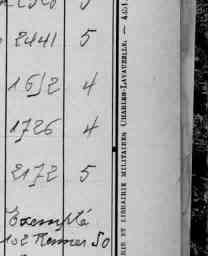 2441 5
1612 4
1726 4
2172 5
Exemple
102 Rennes 50
RIE ET LIBRAIRIE MILITAIRES CHARLES-LAVAUZELLE. —